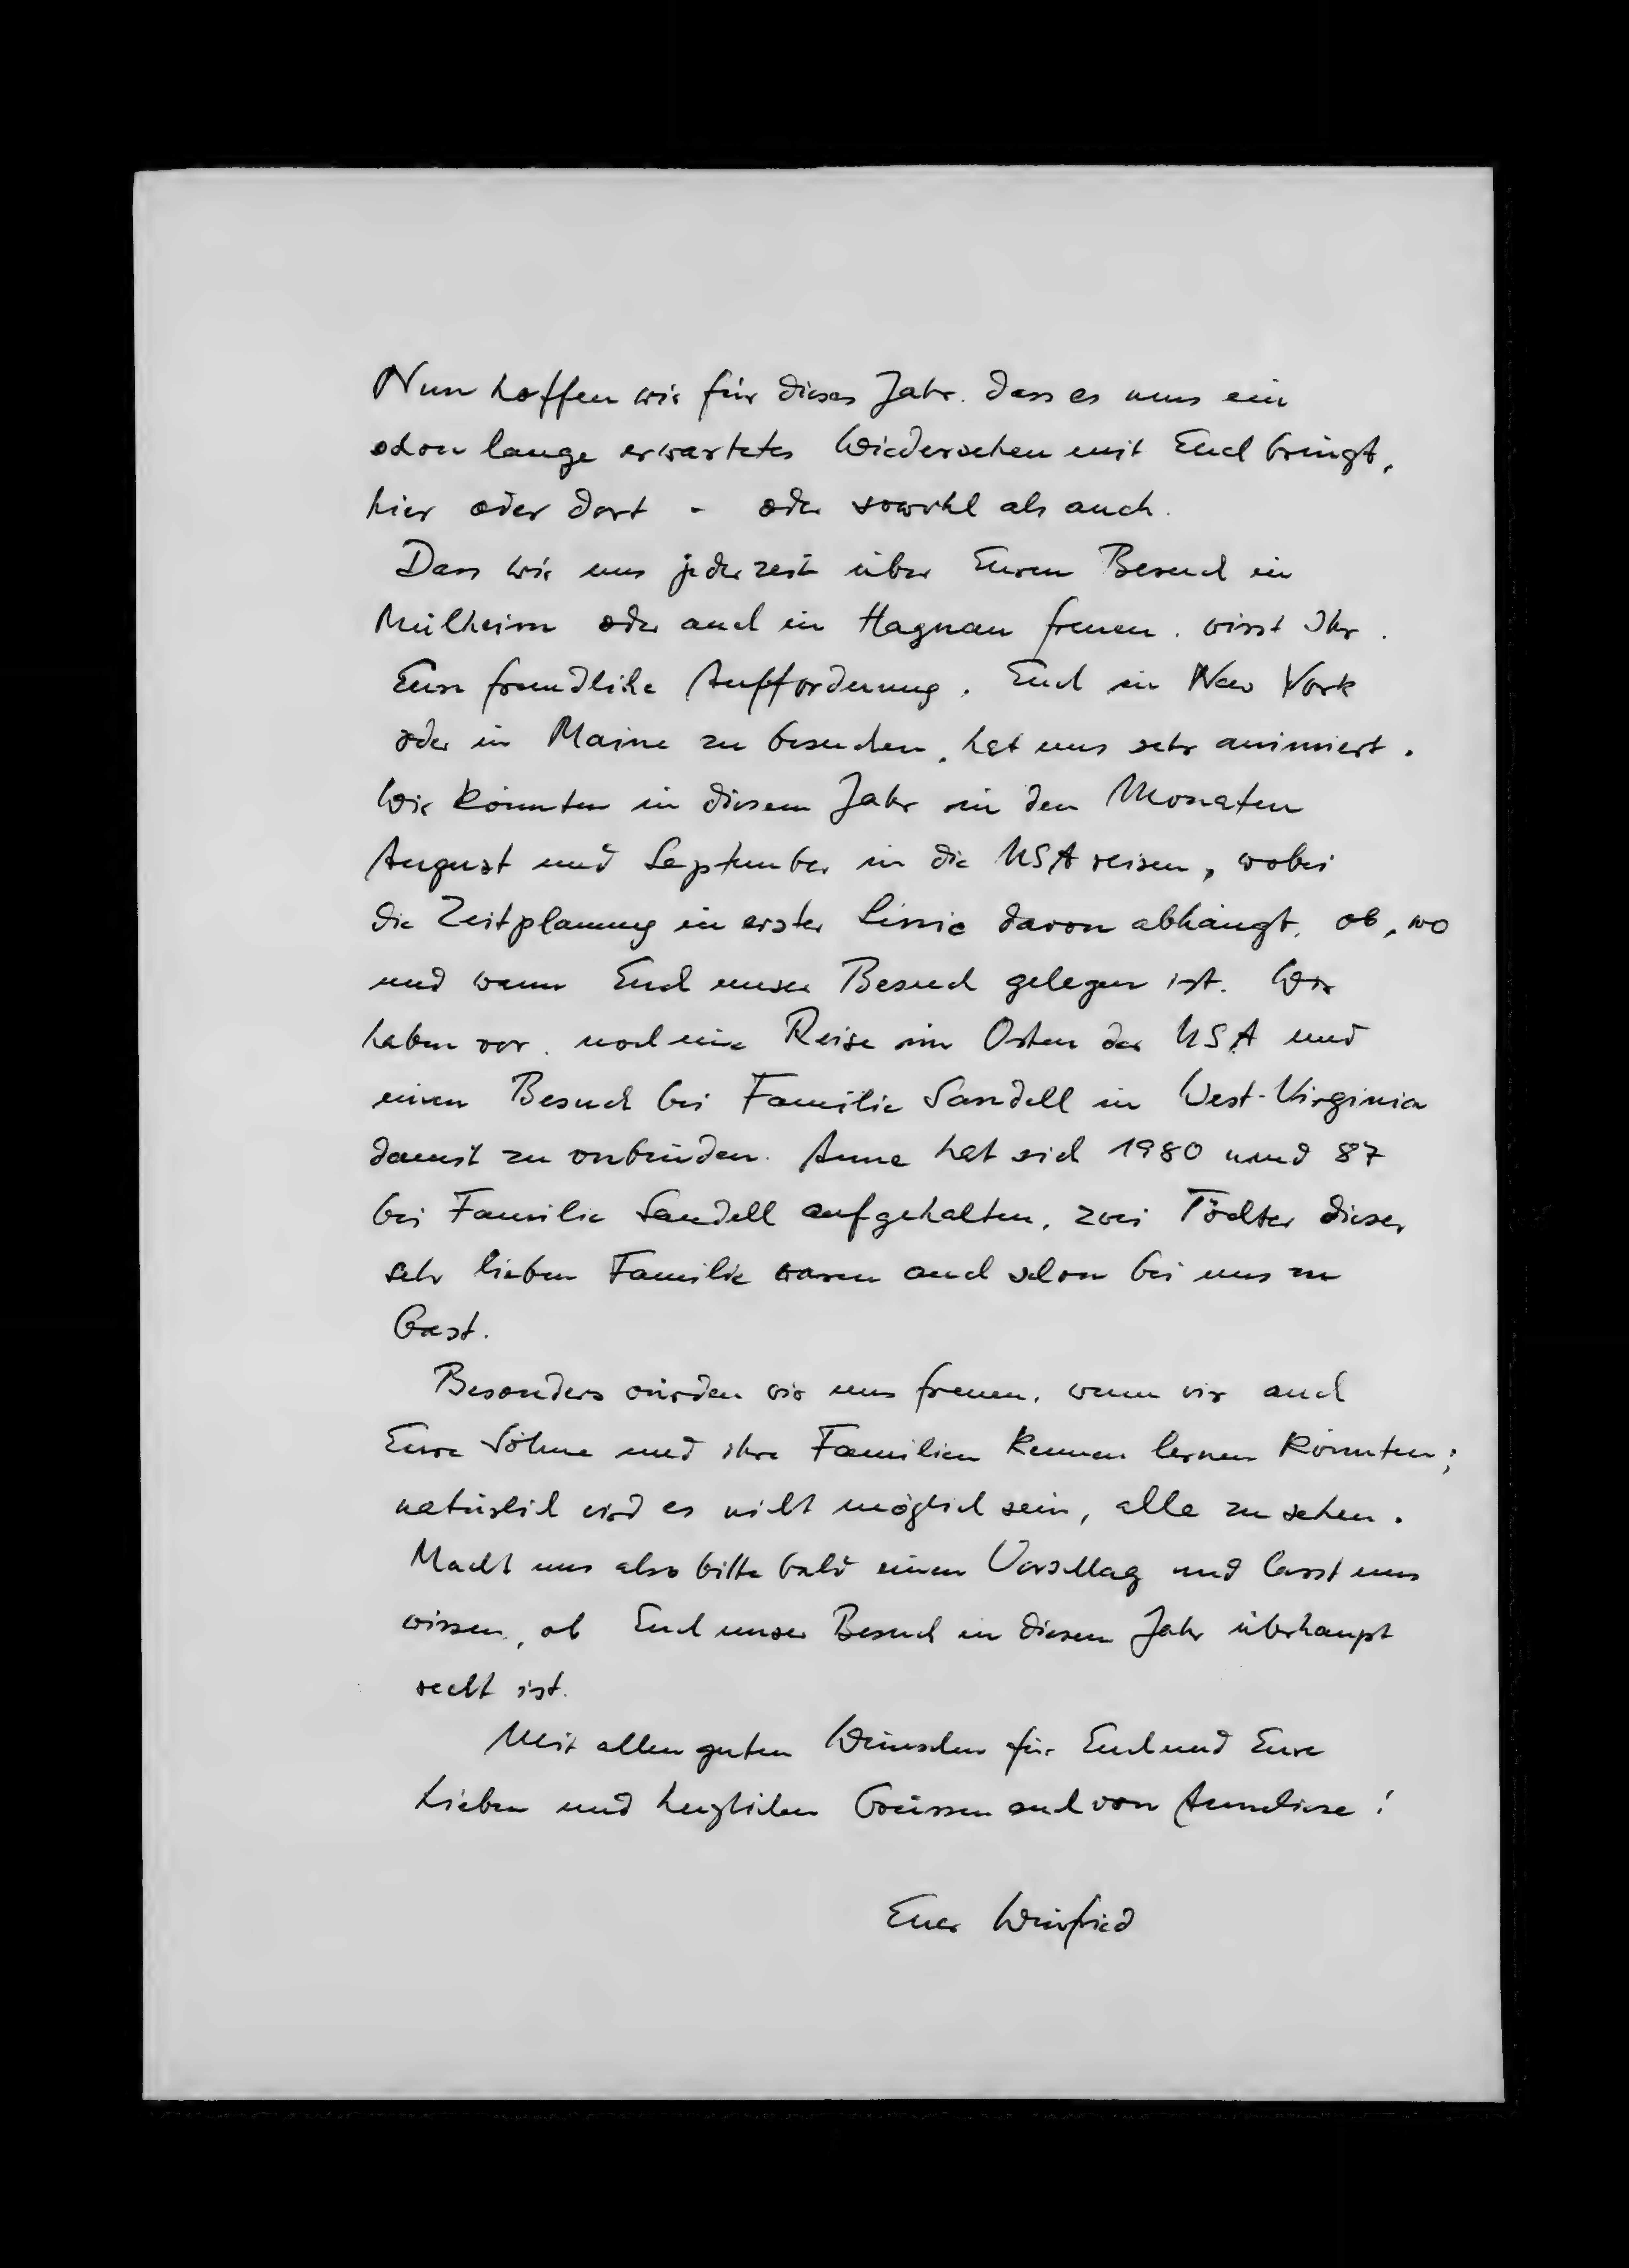 Nun hoffen wir für dieses Jahr, dass es uns ein
schon lange erwartetes Wiedersehen mit Euch bringt,
hier oder dort - oder sowohl als auch.
Dass wir uns jederzeit über Euren Besuch in
Mülheim oder auch in Hagnau freuen, wisst Ihr.
Eure freundliche Aufforderung, Euch in New York
oder in Maine zu besuchen, hat uns sehr animiert.
Wir könnten in diesem Jahr in den Monaten
August und September in die USA reisen, wobei
die Zeitplanung in erster Linie davon abhängt, ob, wo
und wann Euch unser Besuch gelegen ist. Wir
haben vor, noch eine Reise im Osten der USA und
einen Besuch bei Familie Sandell in West-Virginia
damit zu verbinden. Anne hat sich 1980 und 87
bei Familie Sandell aufgehalten, zwei Töchter dieser
sehr lieben Familie waren auch schon bei uns zu
Gast.
Besonders würden wir uns freuen, wenn wir auch
Eure Söhne und ihre Familien kennen lernen könnten;
natürlich wird es nicht möglich sein, alle zu sehen.
Macht uns also bitte bald einen Vorschlag und lasst uns
wissen, ob Euch unser Besuch in diesem Jahr überhaupt
recht ist.
Mit allen guten Wünschen für Euch und Eure
Lieben und herzlichen Grüssen auch von Anneliese!
Euer Winfried